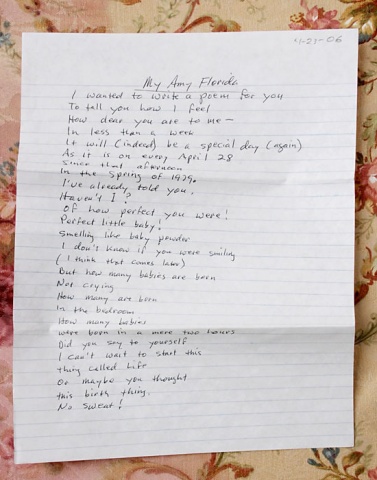 4-21-06
My Amy Florida
I wanted to write a poem for you
To tell you how I feel
How dear you are to me —
In less than a week
It will (indeed) be a special day (again)
As it is on every April 28
Since that afternoon
In the Spring of 1979.
I've already told you,
Haven't I?
Of how perfect you were!
Perfect little baby!
Smelling like baby powder
I don't know if you were smiling
(I think that comes later)
But how many babies are born
Not crying
How many are born
In the bedroom
How many babies
were born in a mere two hours
Did you say to yourself
I can't wait to start this
thing called Life
Or maybe you thought
this birth thing.
No sweat!